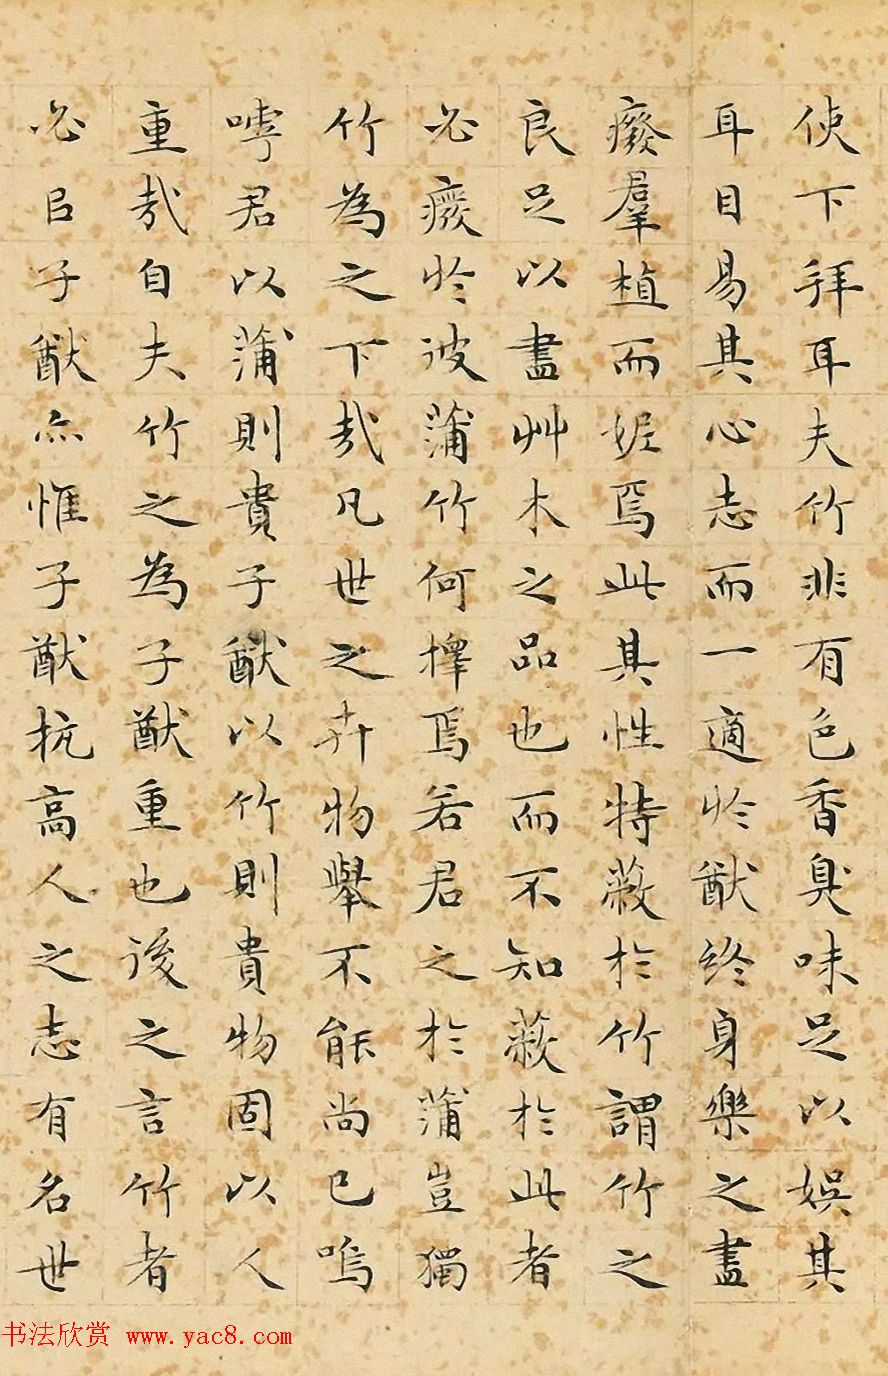 使下拜耳夫竹非有色香臭味足以娛其
耳目易其心志而一適扵猷終身樂之盡
癈羣植而焉此其性特蔽於竹謂竹之
良足以盡艸木之品也而不知蔽於此者
必癈扵彼蒲竹何擇焉若君之於蒲豈獨
竹為之下哉凡世之卉物舉不能尚已嗚
嘑君以蒲則貴子猷以竹則貴物固以人
重哉自夫竹之為子猷重也後之言竹者
必㠯子猷亦惟子猷抗高人之志有名世
书法欣赏 www.yac8.com